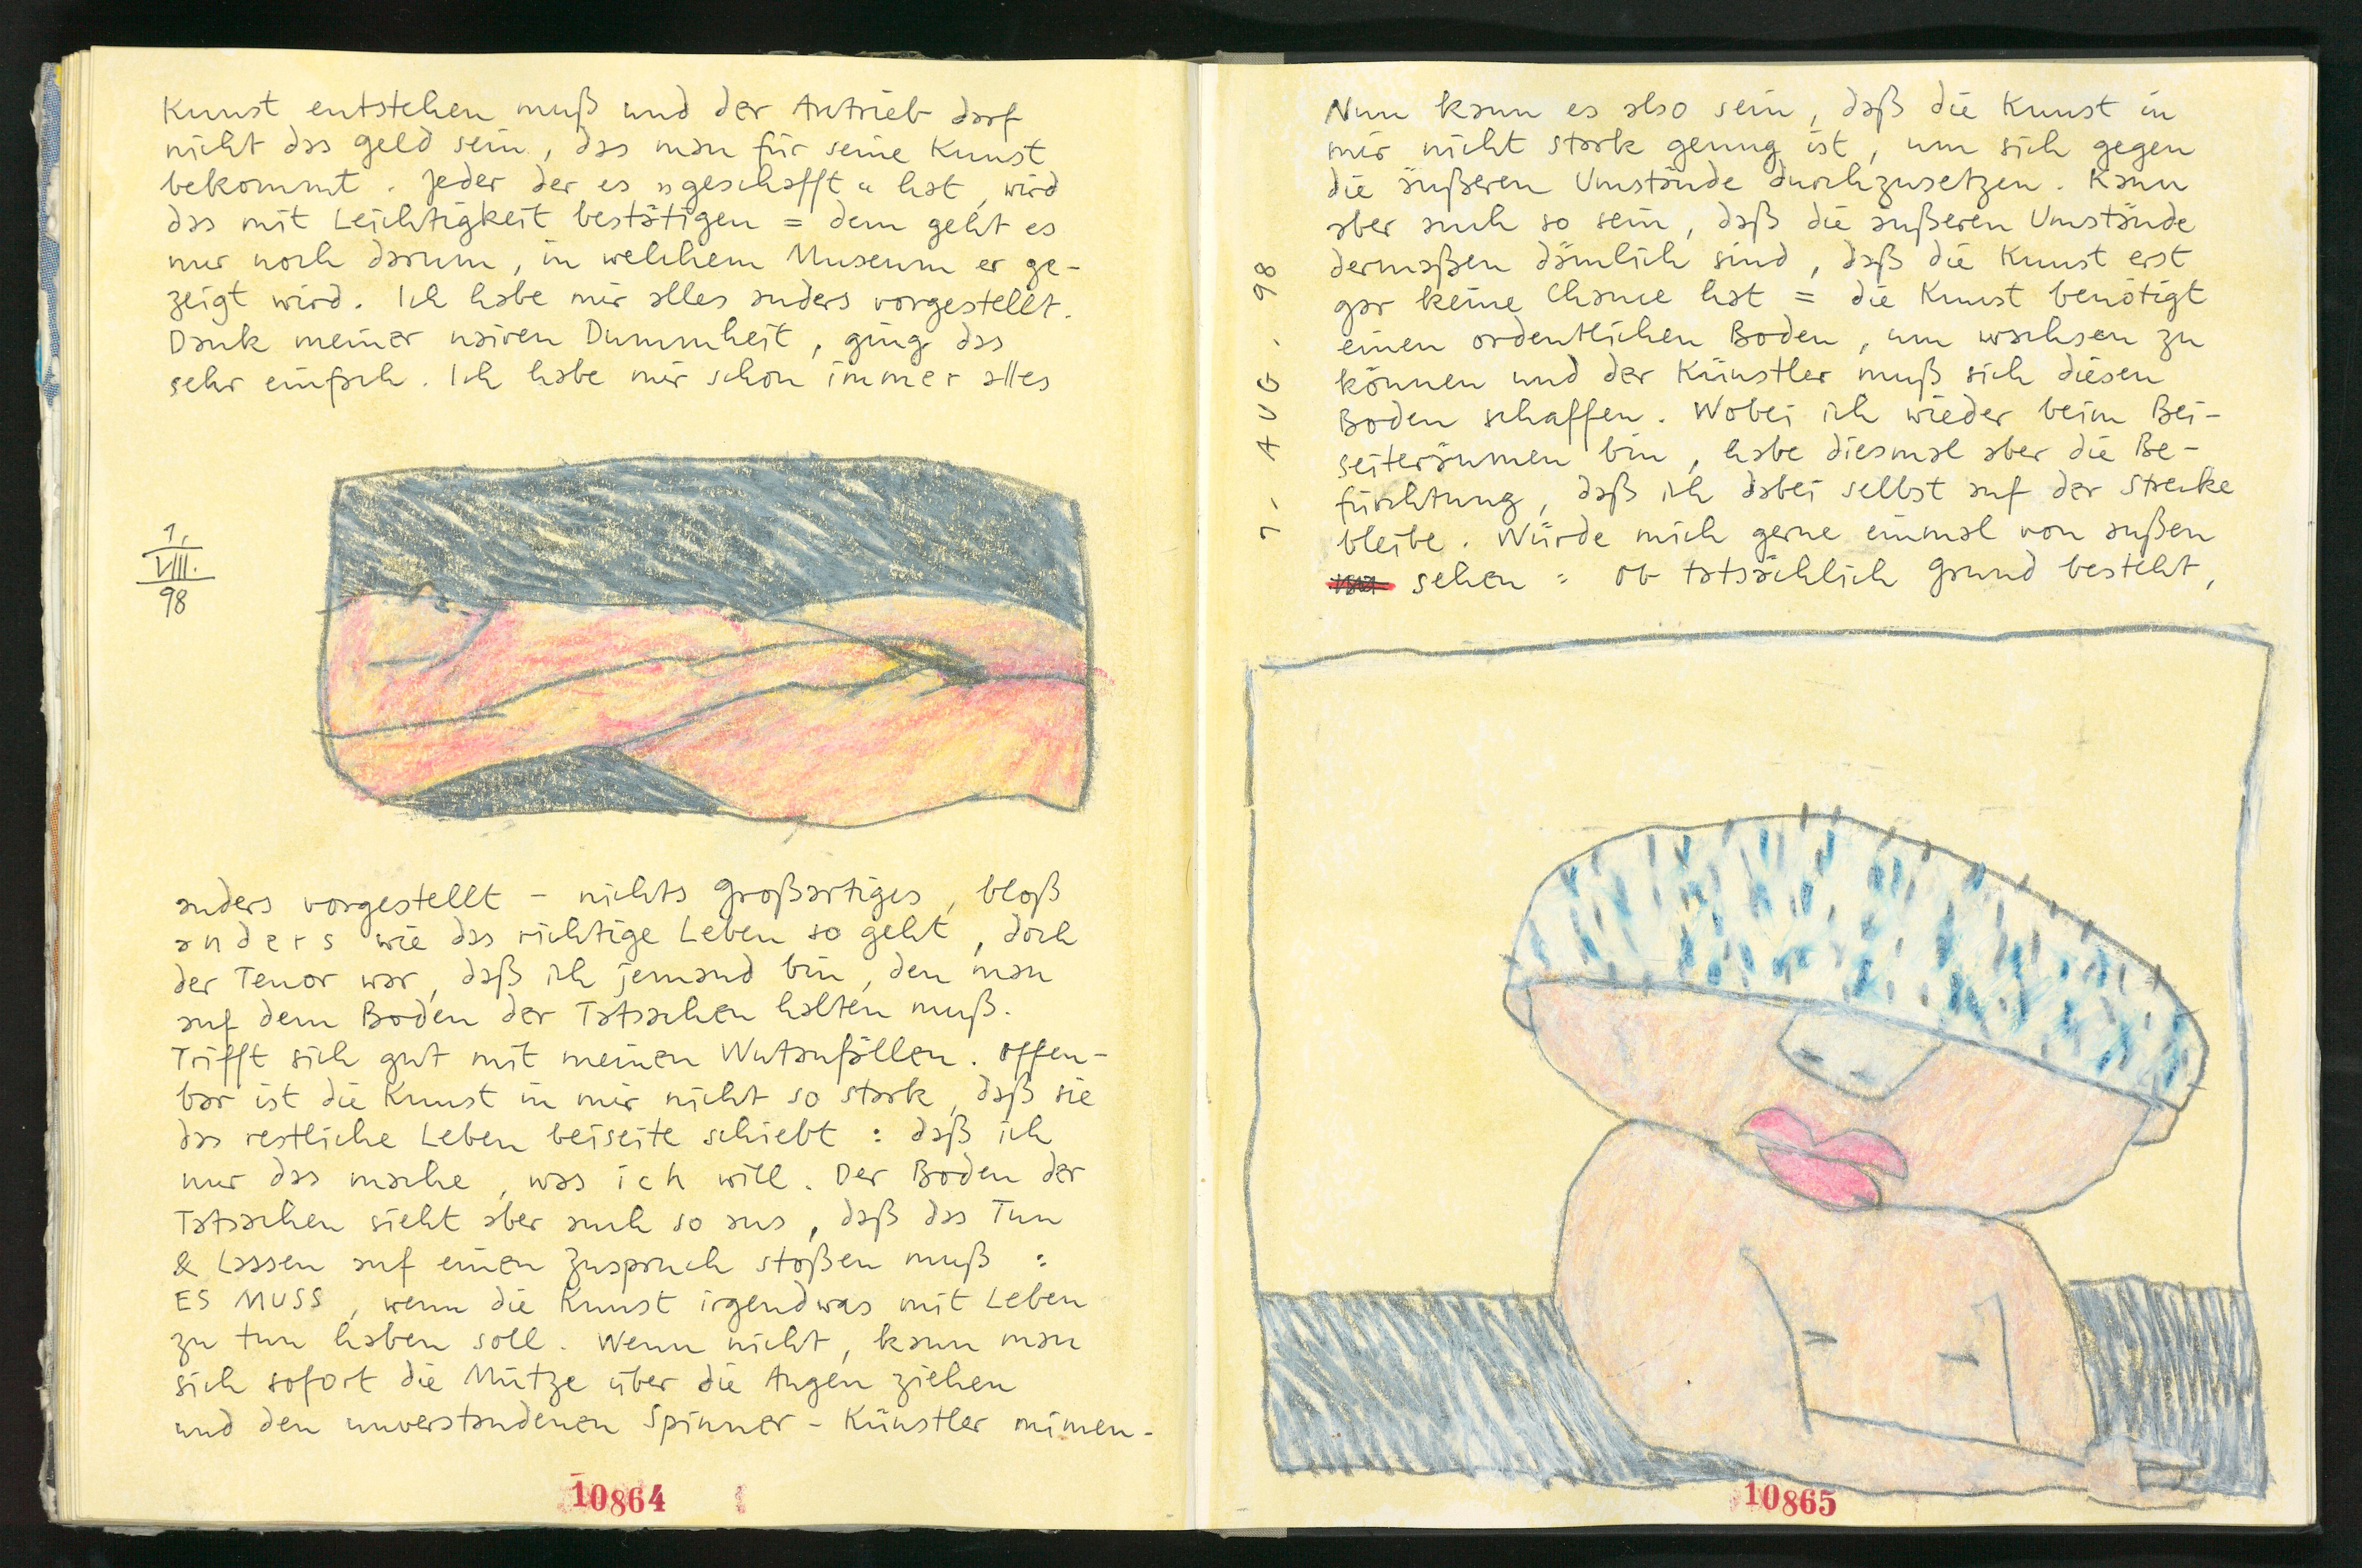 Kunst entstehen muß und der Antrieb darf
nicht das geld sein, das man für seine Kunst
bekommt. Jeder der es „geschafft" hat, wird
das mit Leichtigkeit bestätigen = dem geht es
nur noch darum, in welchem Museum er ge-
zeigt wird. Ich habe mir alles anders vorgestellt.
Dank meiner naiven Dummheit, ging das
sehr einfach. Ich habe mir schon immer alles
1.
VIII.
98
anders vorgestellt - nichts großartiges, bloß
anders wie das richtige Leben so geht, doch
der Tenor war, daß ich jemand bin, den man
auf dem Boden der Tatsachen halten muß.
Trifft sich gut mit meinen Wutanfällen. Offen-
bar ist die Kunst in mir nicht so stark, daß sie
das restliche Leben beiseite schiebt : daß ich
nur das mache, was ich will. Der Boden der
Tatsachen sieht aber auch so aus, daß das Tun
& Lassen auf einen Zuspruch stoßen muß :
ES MUSS, wenn die Kunst irgendwas mit Leben
zu tun haben soll. Wenn nicht, kann man
sich sofort die Mütze über die Augen ziehen
und den unverstandenen Spinner-Künstler mimen-
10864
Nun kann es also sein, daß die Kunst in
mir nicht stark genug ist, um sich gegen
die äußeren Umstände durchzusetzen. Kann
aber auch so sein, daß die äußeren Umstände
dermaßen dämlich sind, daß die Kunst erst
gar keine Chance hat = die Kunst benötigt
einen ordentlichen Boden, um wachsen zu
können und der Künstler muß sich diesen
Boden schaffen. Wobei ich wieder beim Bei-
seiteräumen bin, habe diesmal aber die Be-
fürchtung, daß ich dabei selbst auf der Strecke
bleibe. Würde mich gerne einmal von außen
sehen : ob tatsächlich Grund besteht,
1. AUG. 98
10865